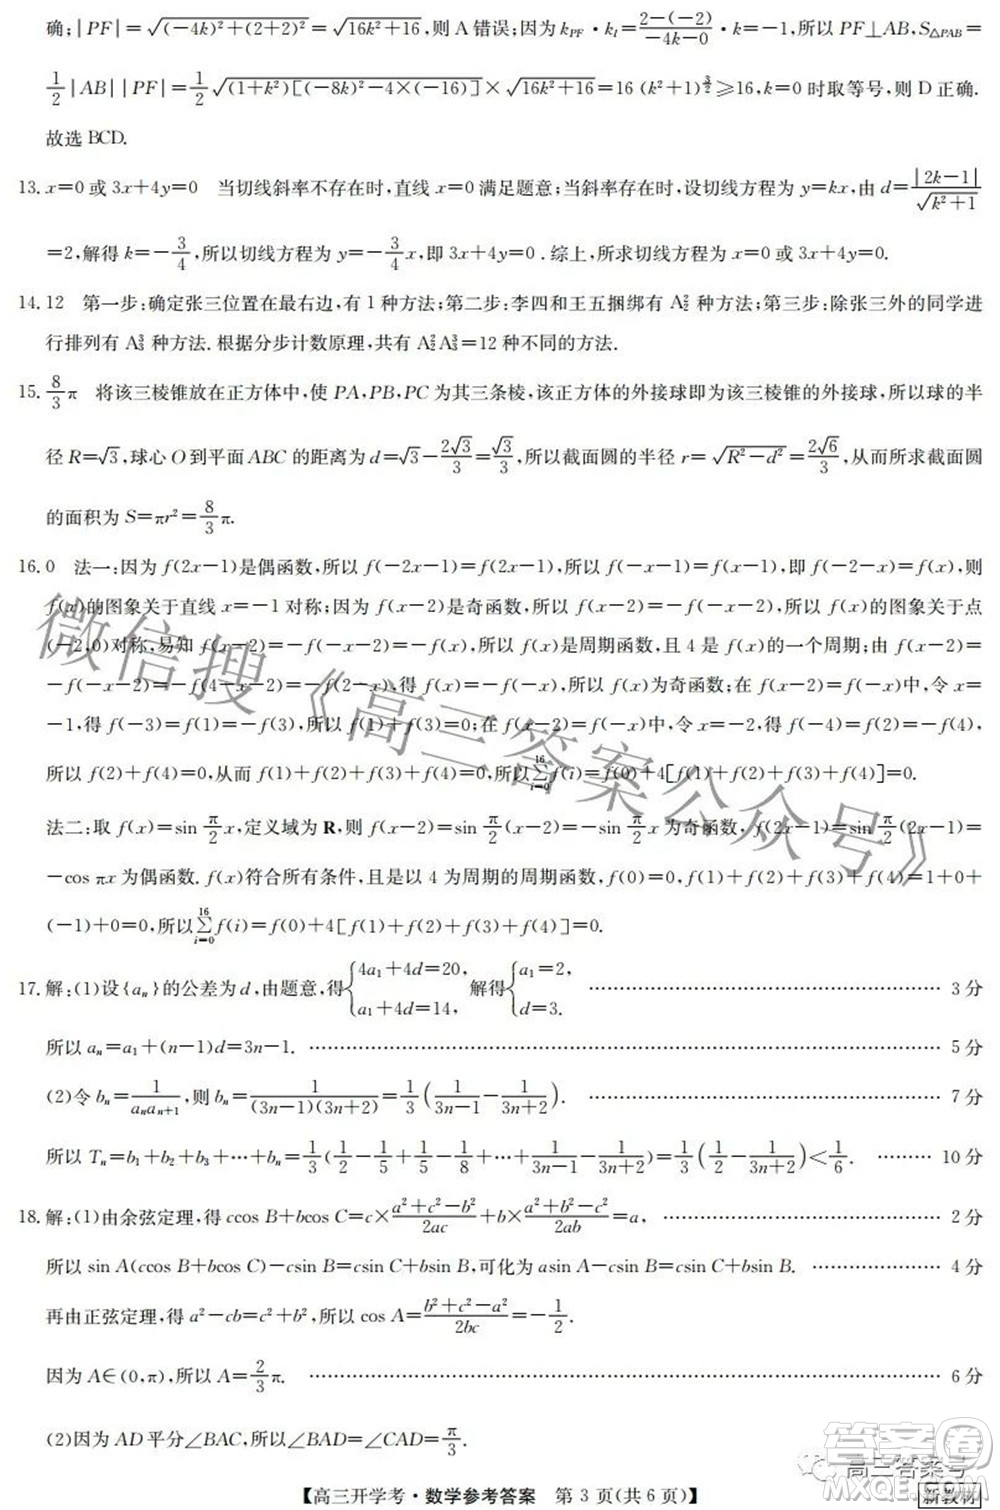 确;|PF|=√((-4k)²+(2+2)²)=√(16k²+16),则 A 错误;因为 k_PF·k_l=(2-(-2))/(-4k-0)·k=-1,所以 PF⊥AB,S_△PAB=
1/2|AB||PF|=1/2√((1+k²)[(-8k)²-4×(-16)])×√(16k²+16)=16(k²+1)^(3/2)≥16,k=0 时取等号,则 D 正确.
故选 BCD.
13.x=0 或 3x+4y=0 当切线斜率不存在时,直线 x=0 满足题意;当斜率存在时,设切线方程为 y=kx,由 d=|2k-1|/√(k²+1)
=2,解得 k=-3/4,所以切线方程为 y=-3/4x,即 3x+4y=0.综上,所求切线方程为 x=0 或 3x+4y=0.
14.12 第一步:确定张三位置在最右边,有 1 种方法;第二步:李四和王五捆绑有 A₂² 种方法;第三步:除张三外的同学进
行排列有 A₃³ 种方法.根据分步计数原理,共有 A₂²A₃³=12 种不同的方法.
15.8/3π 将该三棱锥放在正方体中,使 PA,PB,PC 为其三条棱,该正方体的外接球即为该三棱锥的外接球,所以球的半
径 R=√3,球心 O 到平面 ABC 的距离为 d=√3-2√3/3=√3/3,所以截面圆的半径 r=√(R²-d²)=2√6/3,从而所求截面圆
的面积为 S=πr²=8/3π.
16.0 法一:因为 f(2x-1)是偶函数,所以 f(-2x-1)=f(2x-1),所以 f(-x-1)=f(x-1),即 f(-2-x)=f(x),则
f(x)的图象关于直线 x=-1 对称;因为 f(x-2)是奇函数,所以 f(x-2)=-f(-x-2),所以 f(x)的图象关于点
(-2,0)对称,易知 f(x-2)=-f(-x-2)=-f(x),所以 f(x)是周期函数,且 4 是 f(x)的一个周期;由 f(x-2)=
-f(-x-2)=-f(4-x-2)=-f(2-x),得 f(x)=-f(-x),所以 f(x)为奇函数;在 f(x-2)=f(-x)中,令 x=
-1,得 f(-3)=f(1)=-f(3),所以 f(1)+f(3)=0;在 f(x-2)=f(-x)中,令 x=-2,得 f(-4)=f(2)=-f(4),
所以 f(2)+f(4)=0,从而 f(1)+f(2)+f(3)+f(4)=0,所以∑_{i=0}^{16}f(i)=f(0)+4[f(1)+f(2)+f(3)+f(4)]=0.
法二:取 f(x)=sin π/2 x,定义域为 R,则 f(x-2)=sin π/2(x-2)=-sin π/2 x 为奇函数,f(2x-1)=sin π/2(2x-1)=
-cos πx 为偶函数.f(x)符合所有条件,且是以 4 为周期的周期函数,f(0)=0,f(1)+f(2)+f(3)+f(4)=1+0+
(-1)+0=0,所以∑_{i=0}^{16}f(i)=f(0)+4[f(1)+f(2)+f(3)+f(4)]=0.
17.解:(1)设{aₙ}的公差为 d,由题意,得{4a₁+4d=20, a₁+4d=14, 解得{a₁=2, d=3. …… 3 分
所以 aₙ=a₁+(n-1)d=3n-1. …… 5 分
(2)令 bₙ=1/(aₙaₙ₊₁),则 bₙ=1/((3n-1)(3n+2))=1/3(1/(3n-1)-1/(3n+2)). …… 7 分
所以 Tₙ=b₁+b₂+b₃+…+bₙ=1/3(1/2-1/5+1/5-1/8+…+1/(3n-1)-1/(3n+2))=1/3(1/2-1/(3n+2))<1/6. …… 10 分
18.解:(1)由余弦定理,得 ccos B+bcos C=c×(a²+c²-b²)/2ac+b×(a²+b²-c²)/2ab=a, …… 2 分
所以 sin A(ccos B+bcos C)-csin B=csin C+bsin B,可化为 asin A-csin B=csin C+bsin B. …… 4 分
再由正弦定理,得 a²-cb=c²+b²,所以 cos A=(b²+c²-a²)/2bc=-1/2.
因为 A∈(0,π),所以 A=2/3π. …… 6 分
(2)因为 AD 平分∠BAC,所以∠BAD=∠CAD=π/3.
【高三开学考·数学参考答案 第 3 页(共 6 页)】
新教材
微信搜《高三答案公众号》
高三答案号
答案圈